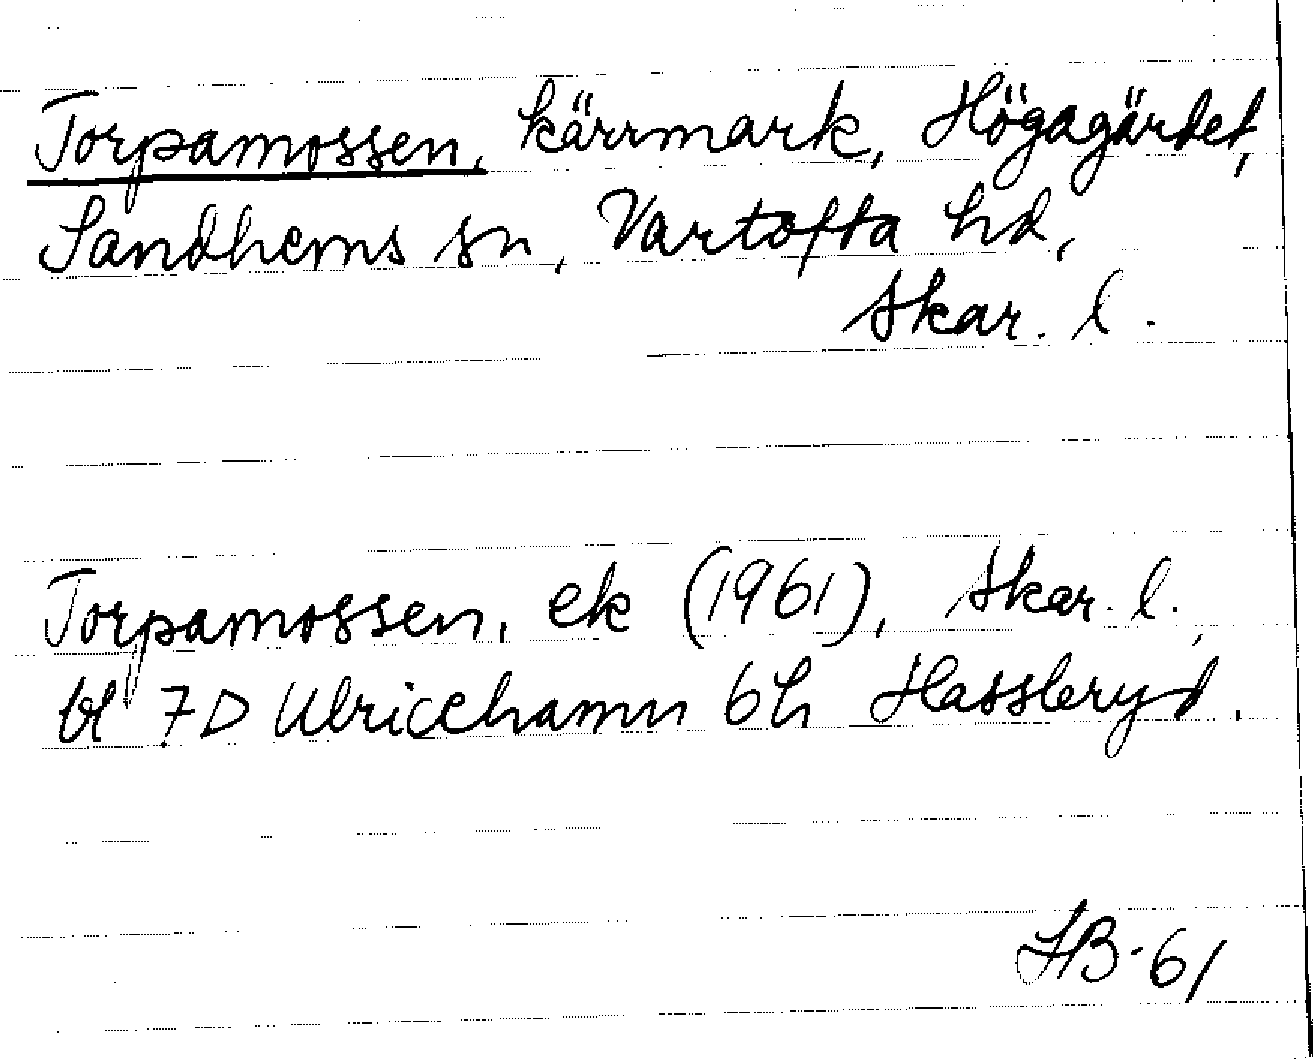 Torpamossen, kärrmark, Högagärdet,
Sandhems sn, Vartofta hd,
Skar. l.
Torpamossen, ek (1961), Skar. l.,
bl 7D Ulricehamn 6h Hassleryd.
HB-61